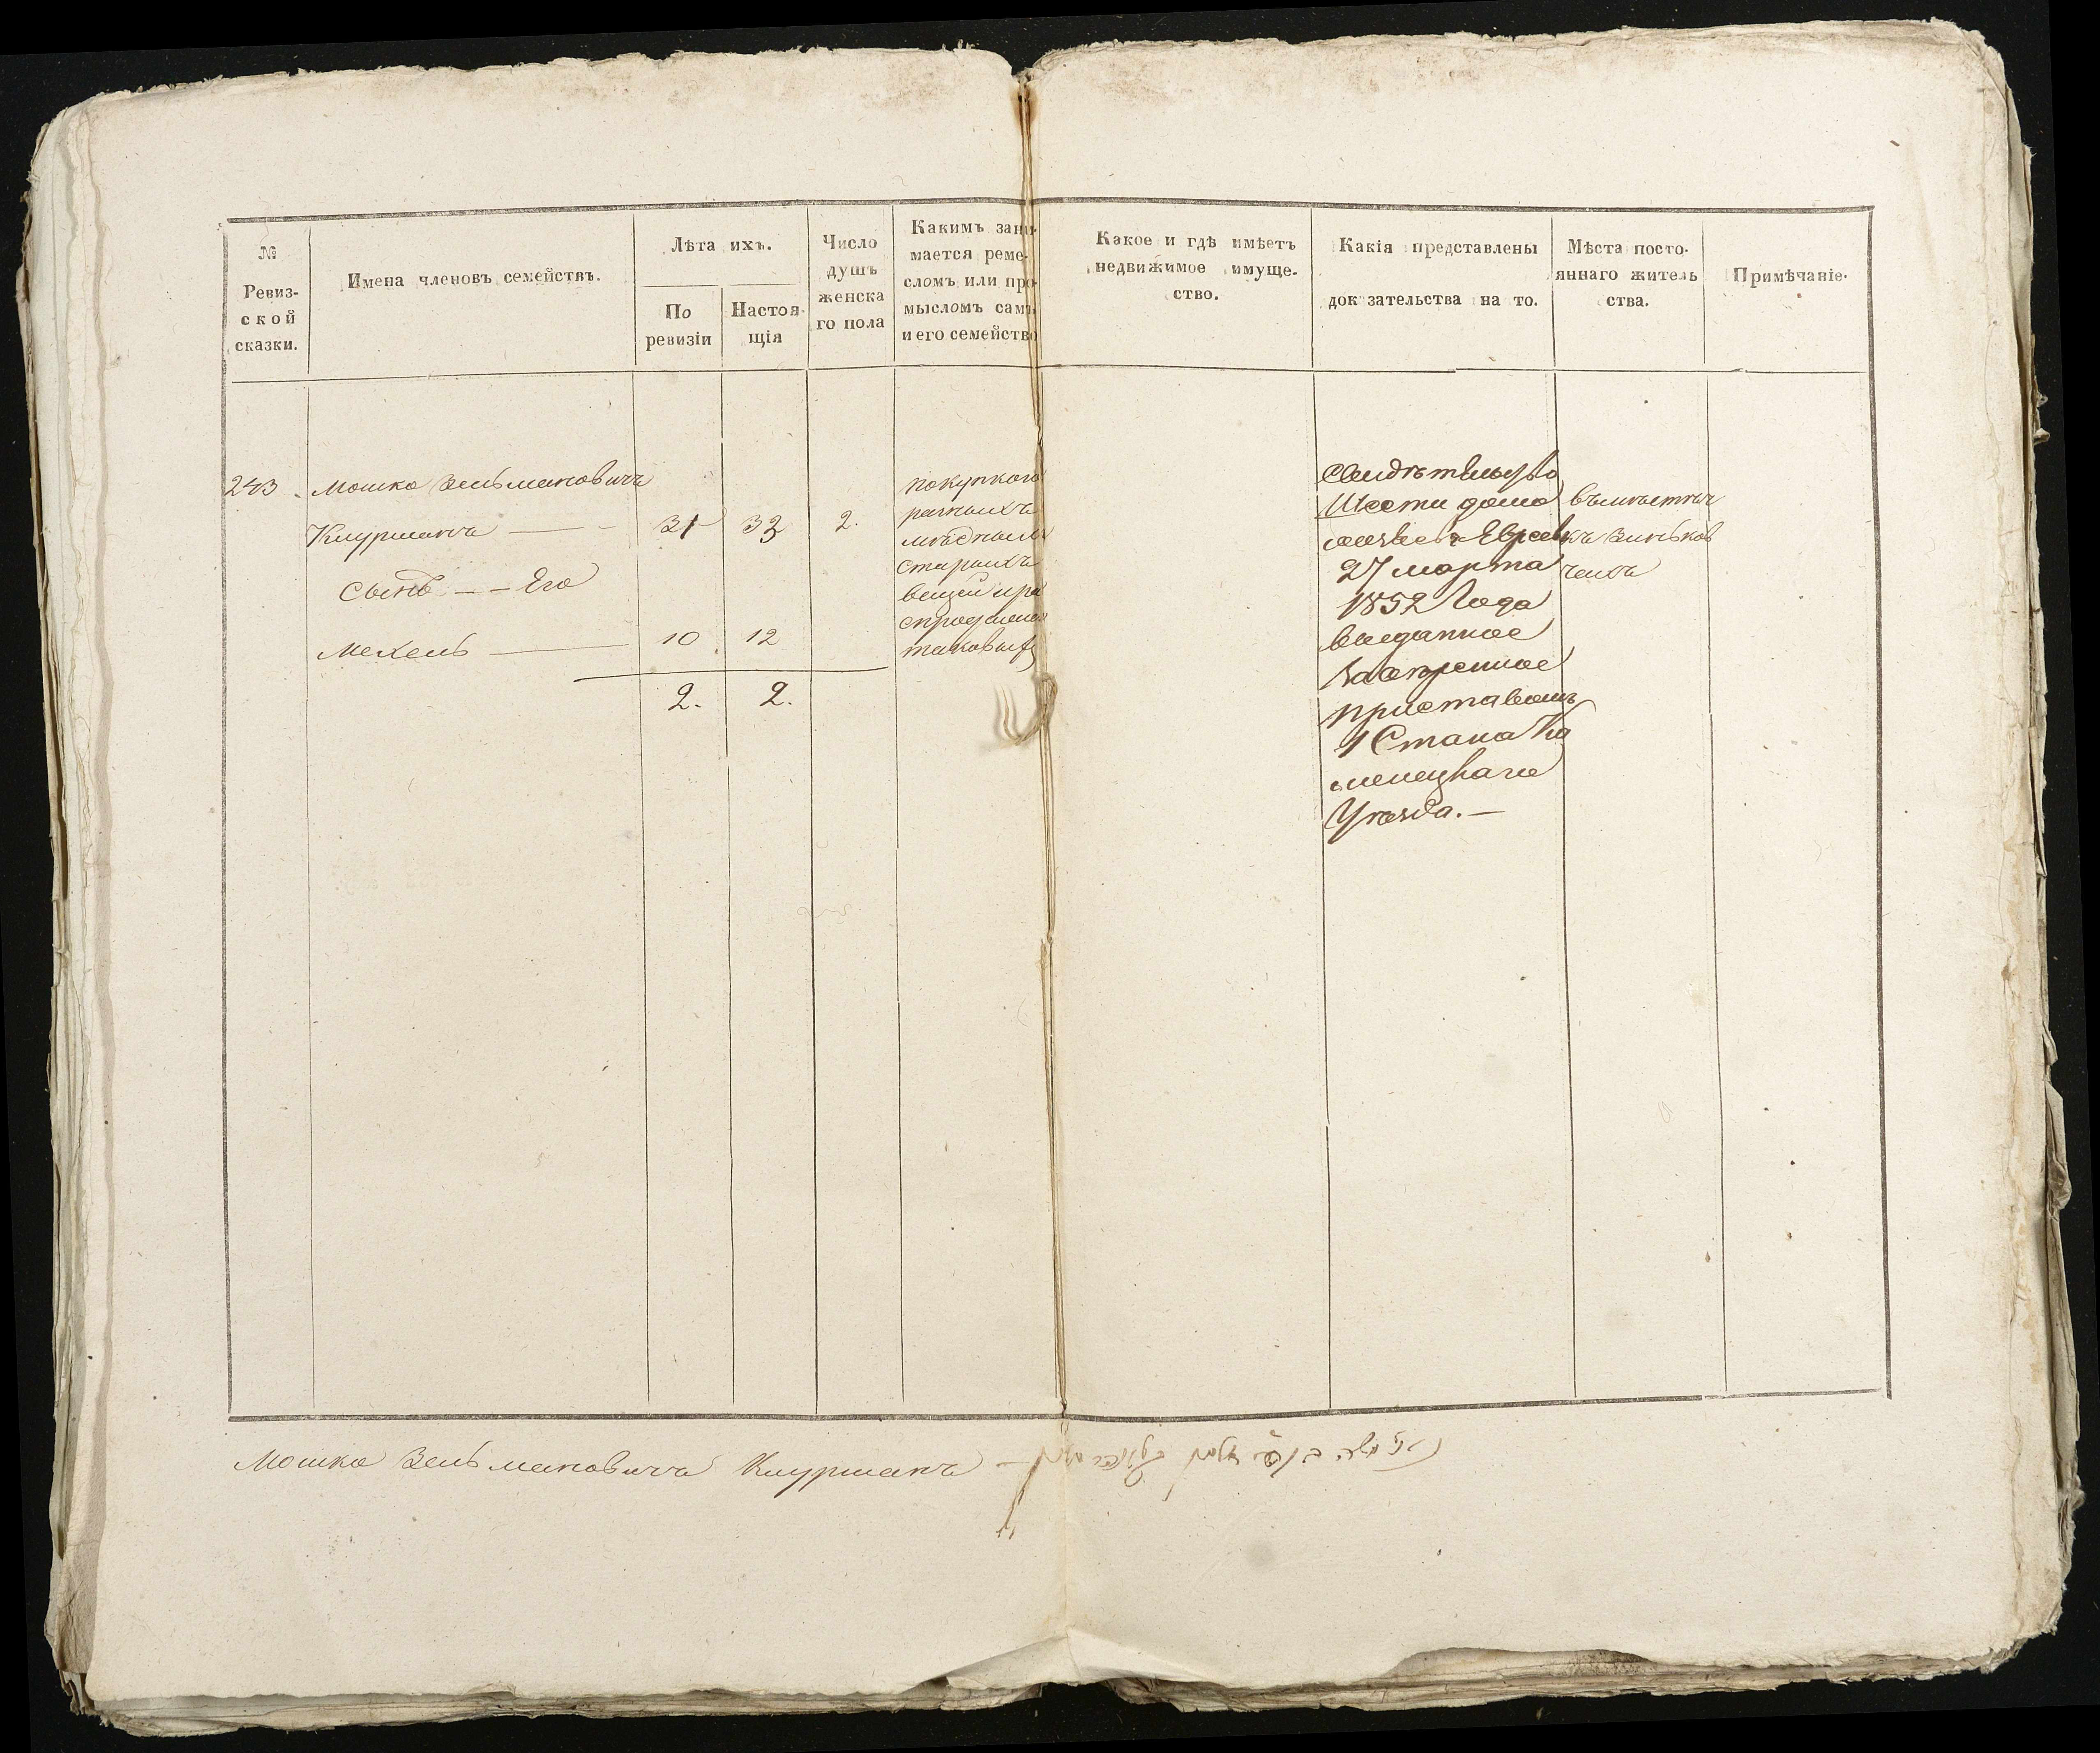 №
Ревиз-
ской
сказки.
Имена членовъ семействъ.
Лѣта ихъ.
По
ревизіи
Настоя-
щія
Число
душъ
женска
го пола
Какимъ зани-
мается реме-
сломъ или про-
мысломъ самъ
и его семейство
Какое и гдѣ имѣетъ
недвижимое имуще-
ство.
Какія представлены
док зательства на то.
Мѣста посто-
яннаго житель
ства.
Примѣчаніе.
243 Мошко Зельмановичъ
Клурманъ
31 32 2.
Сынъ Его
Мехель 10 12
2. 2.
покупкою
разныхъ
мѣдныхъ
старыхъ
вещей
таковыхъ
Свидѣтельство
Шести домо
хозяевъ Евреевъ
27 марта
1852 Года
выданное
приставомъ
1 Стана Ка
менецкаго
Уѣзда.
въ мѣстеч
кѣ Зиньков
цахъ
Мошко Зельмановичъ Клурманъ